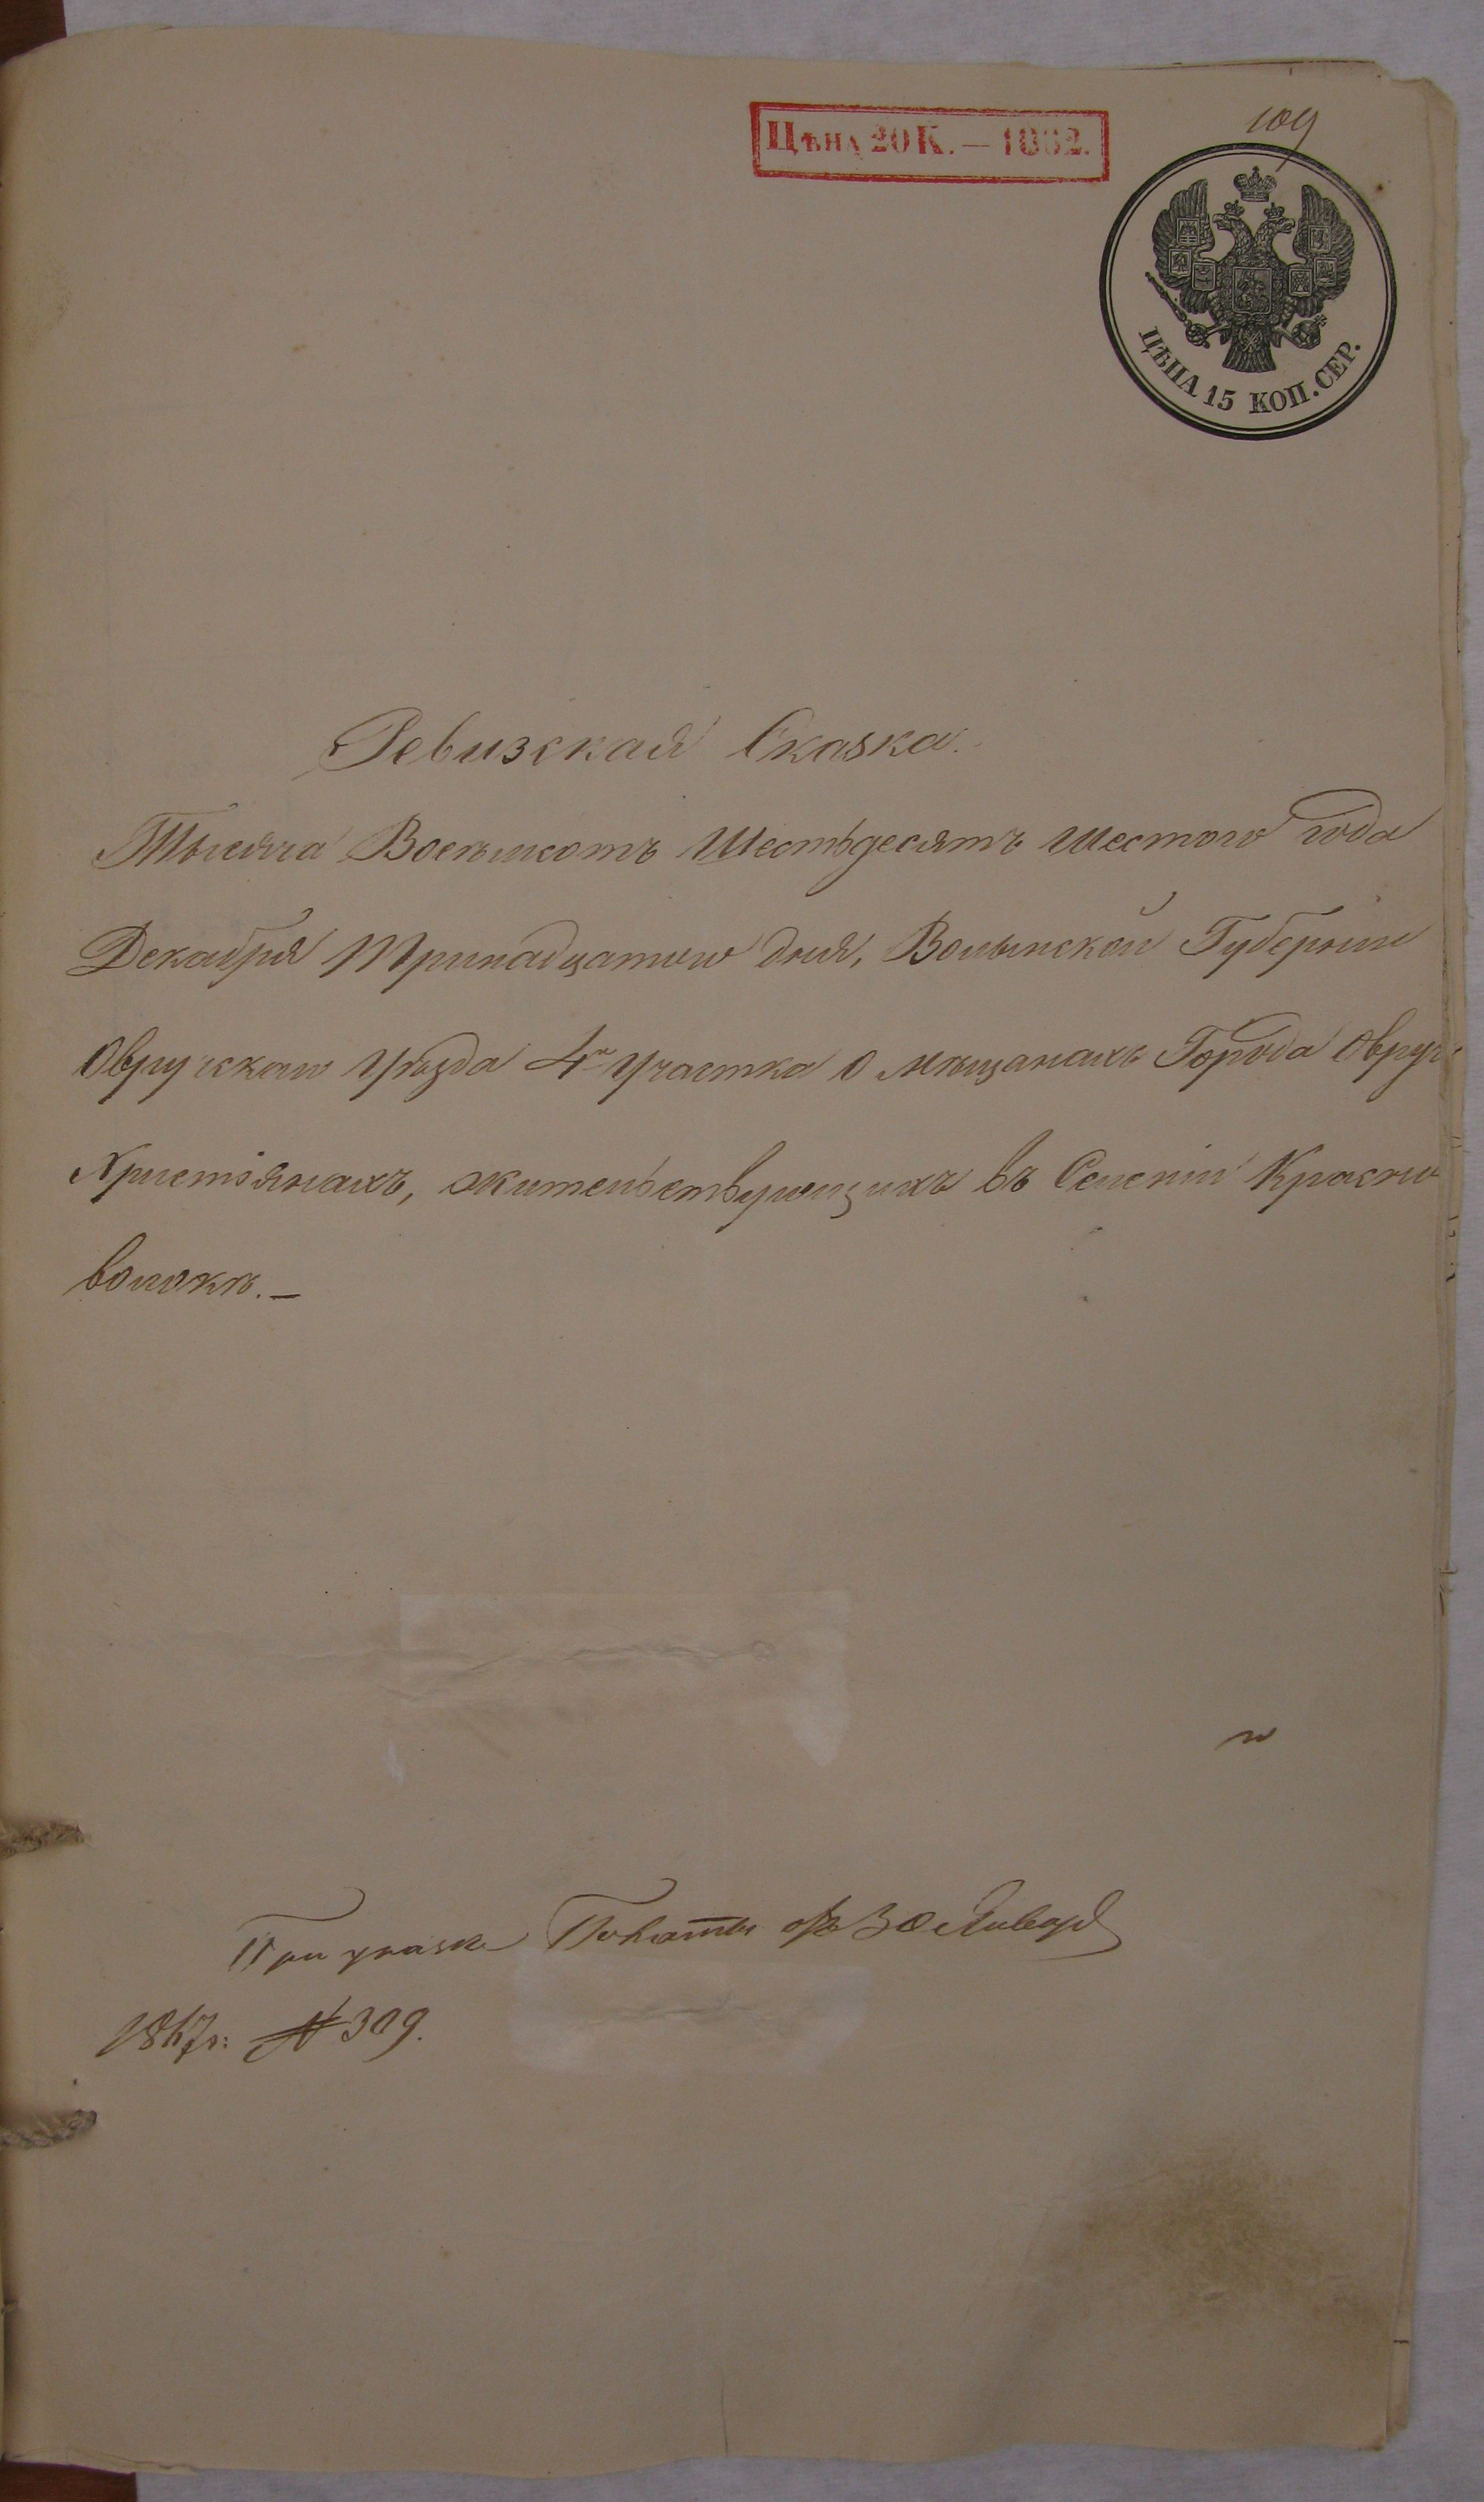 109
Цѣна 20 К. — 1862.
ЦѢНА 15 КОП. СЕР.
Ревизская Сказка.
Тысяча Восемьсотъ Шестьдесятъ Шестого года
Декабря Тринадцатого дня, Волынской Губерніи
Овручскаго Уѣзда 4го Участка о мѣщанахъ Города Овруч
Христіянахъ, жительствующихъ въ Селеніи Красно
волокѣ. —
При указѣ Палаты отъ 30 Января
1867 г: № 309.